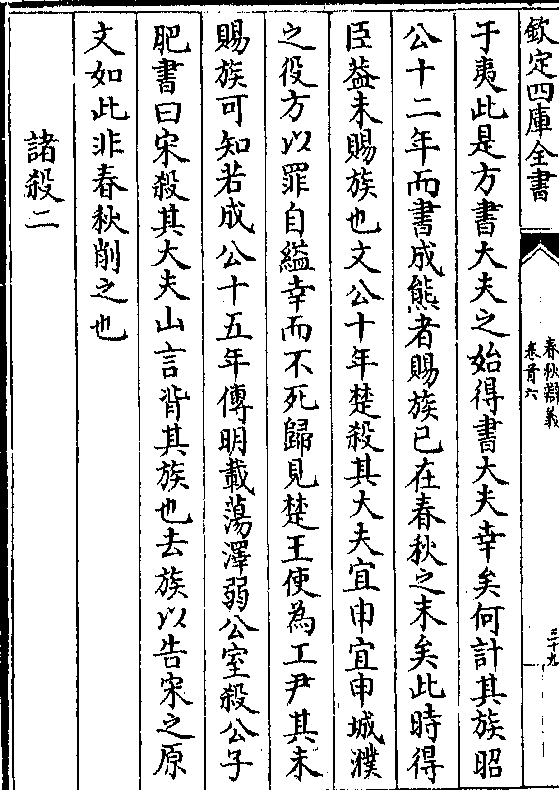 欽定四庫全書
春秋辯義
卷首六
三十九
于夷此是方書大夫之始得書大夫幸矣何計其族昭
公十二年而書成熊者賜族已在春秋之末矣此時得
臣葢未賜族也文公十年楚殺其大夫宜申宜申城濮
之役方以罪自縊幸而不死歸見楚王使為工尹其未
賜族可知若成公十五年傳明載蕩澤弱公室殺公子
肥書曰宋殺其大夫山言背其族也去族以告宋之原
文如此非春秋削之也
諸殺二